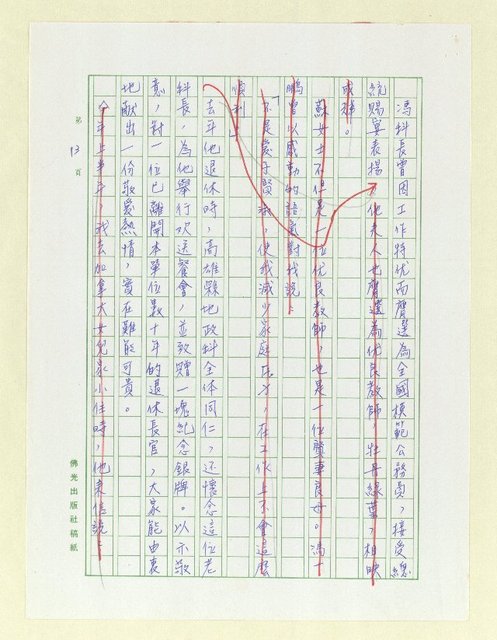 馮科長曾因工作特优而膺選為全國模範公務員，接受總
統賜宴表揚，他夫人也膺選為优良教師，牡丹綠葉，相映
成輝。
蘇女士不但是一位优良教師，也是一位賢妻良母。馮
鵬曾以感動的語意對我說：
「不是妻子賢淑，使我減少家庭压力，在工作上不會這麼
順利」
去年他退休時，高雄縣地政科全体同仁，还懷念這位老
科長，為他舉行欢送餐會，並致贈一塊紀念銀牌。以示敬
意，對一位已離開本單位數十年的退休長官，大家能由衷
地献出一份敬愛熱情，實在難能可貴。
今年上半年，我去加拿大女兒家小住時，他来信說：
第13頁
佛光出版社稿紙